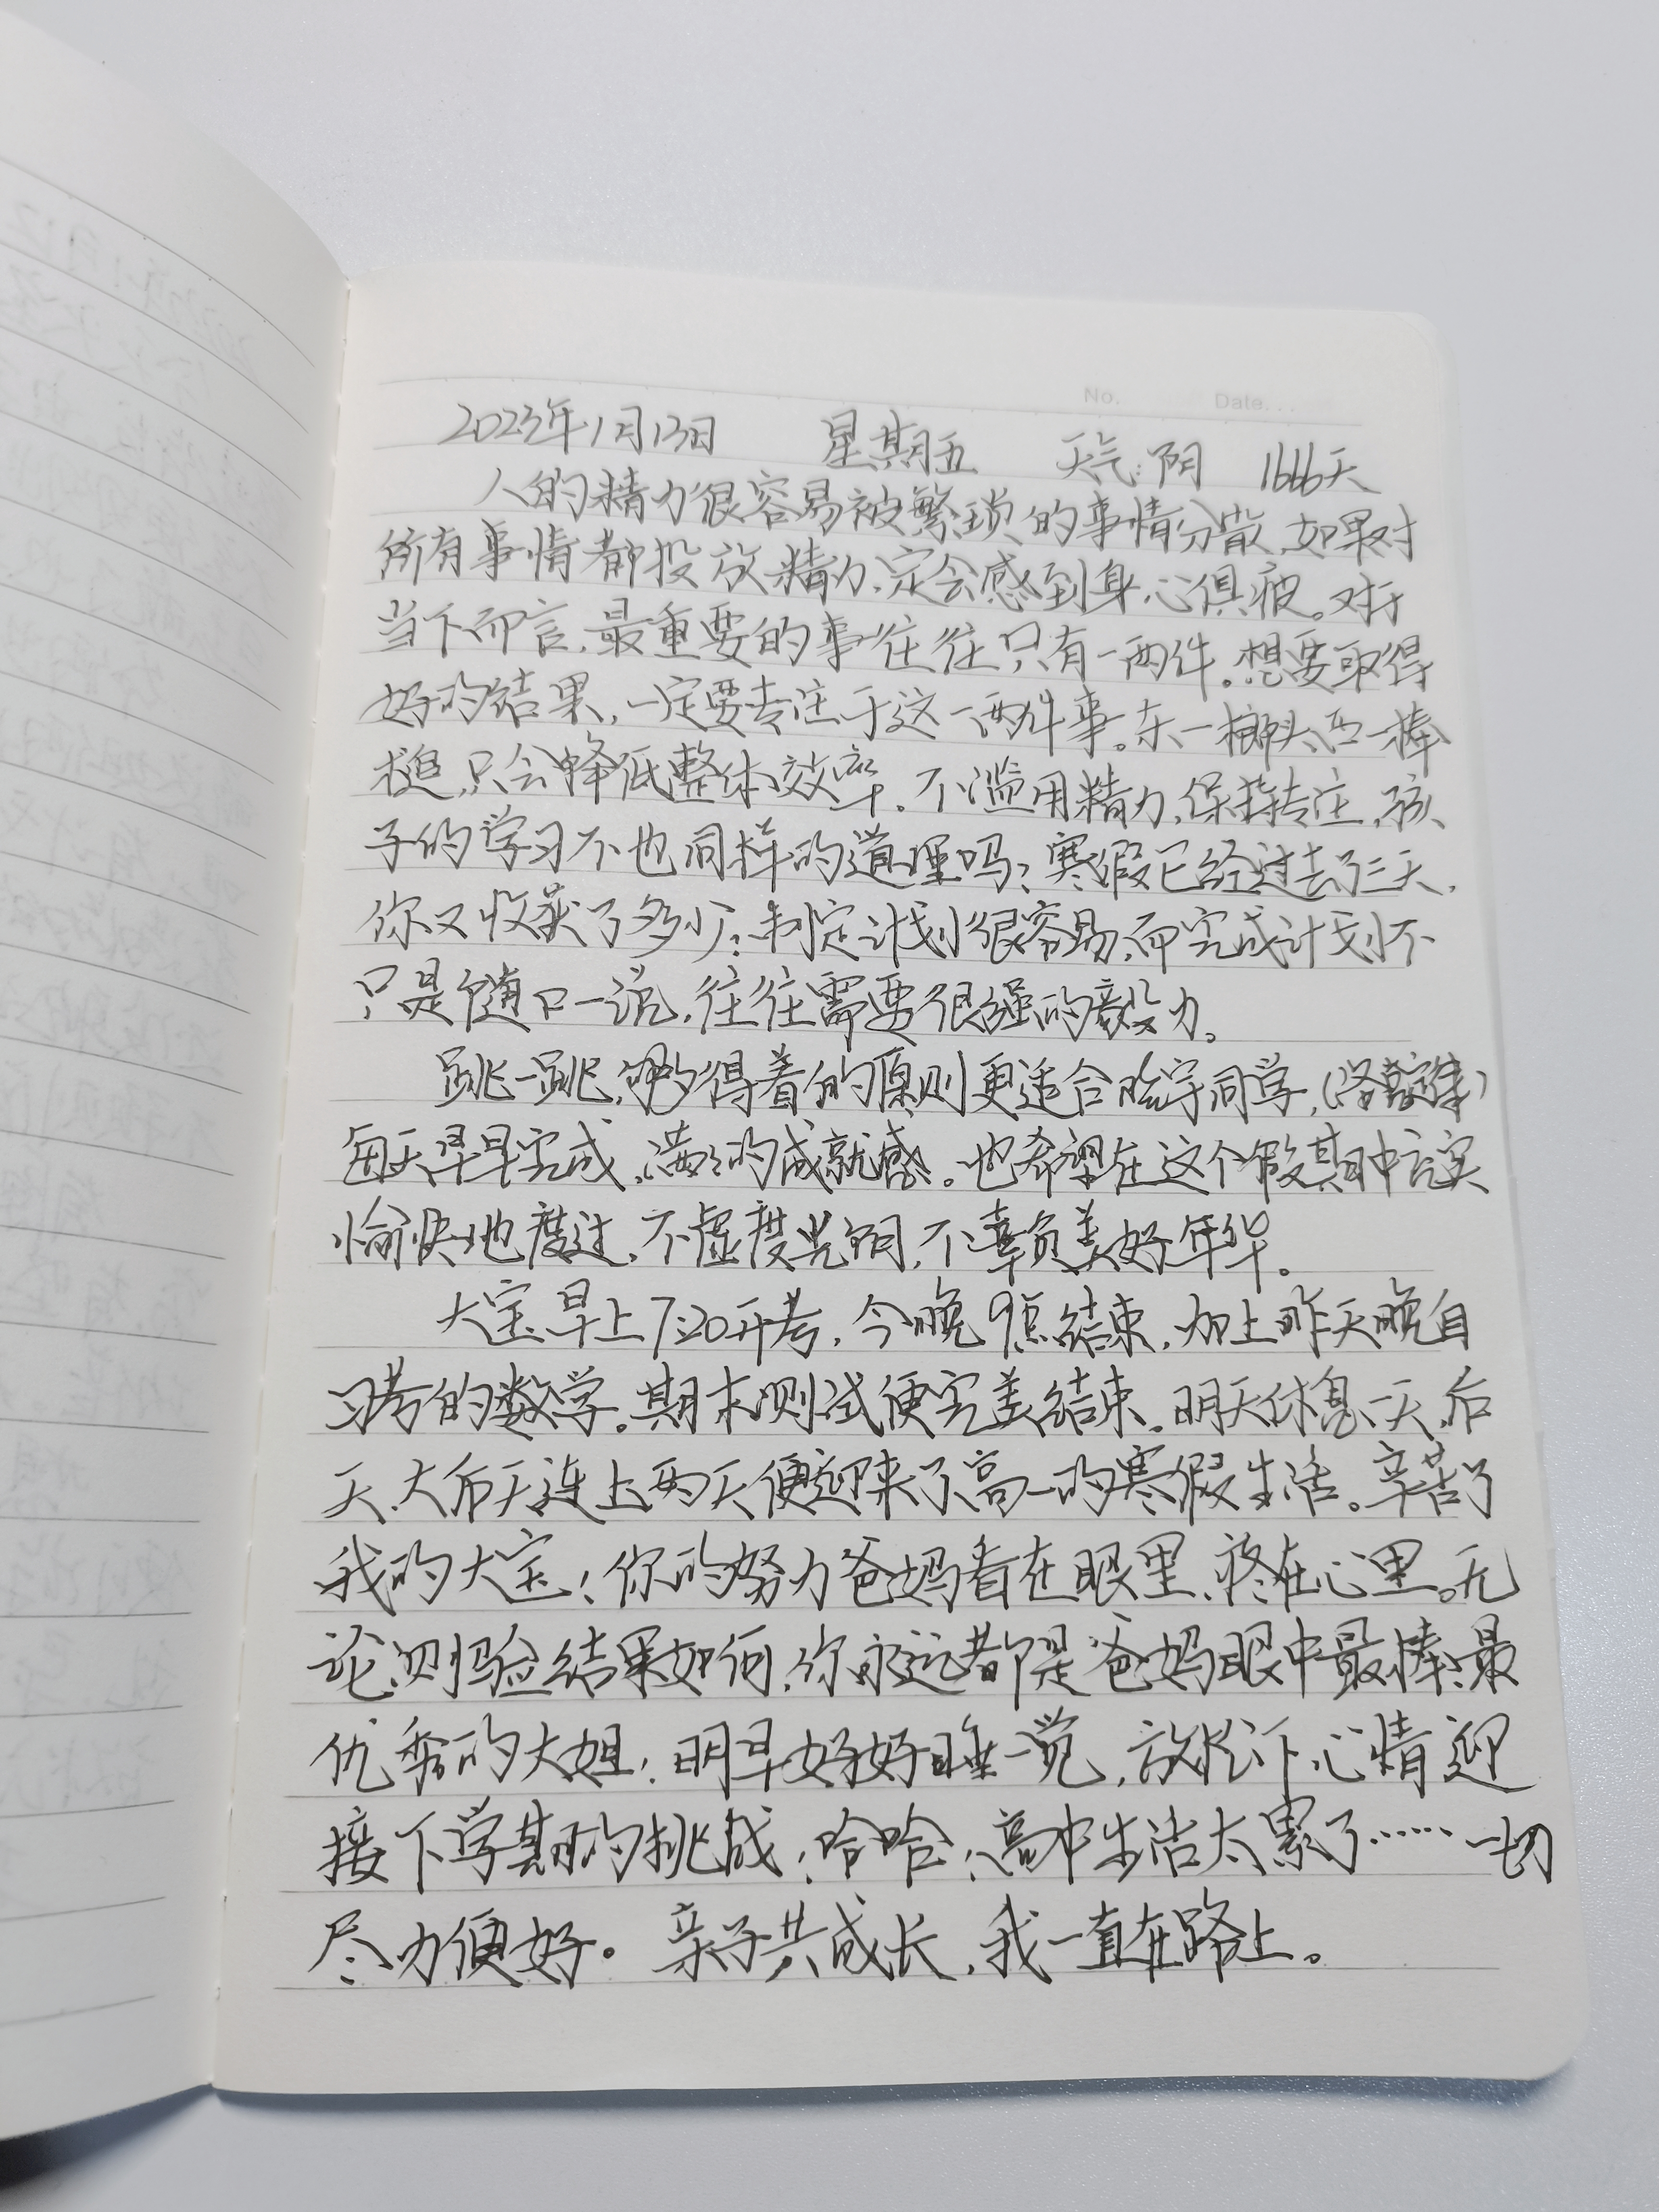 No. Date...
2023年1月13日 星期五 天气:阴 1666天
人的精力很容易被繁琐的事情分散,如果对
所有事情都投放精力,定会感到身心俱疲。对于
当下而言,最重要的事往往只有一两件。想要取得
好的结果,一定要专注于这一两件事。东一榔头西一棒
槌,只会降低整体效率。不滥用精力,保持专注,孩
子的学习不也同样的道理吗?寒假已经过去了三天,
你又收获了多少?制定计划很容易,而完成计划不
只是随口一说,往往需要很强的毅力。
跳一跳,够得着的原则更适合 宇同学,
每天早早完成,满满的成就感。也希望在这个假期中充实
愉快地度过,不虚度光阴,不辜负美好年华。
大宝早上7:20开考,今晚9点结束,加上昨天晚自
习考的数学。期末测试便完美结束。明天休息一天,后
天、大后天连上两天便迎来了高一的寒假生活。辛苦了
我的大宝!你的努力爸妈看在眼里,疼在心里。无
论测验结果如何,你永远都是爸妈眼中最棒、最
优秀的大姐!明早好好睡一觉,放松下心情迎
接下学期的挑战!哈哈!高中生活太累了……一切
尽力便好。亲子共成长,我一直在路上。